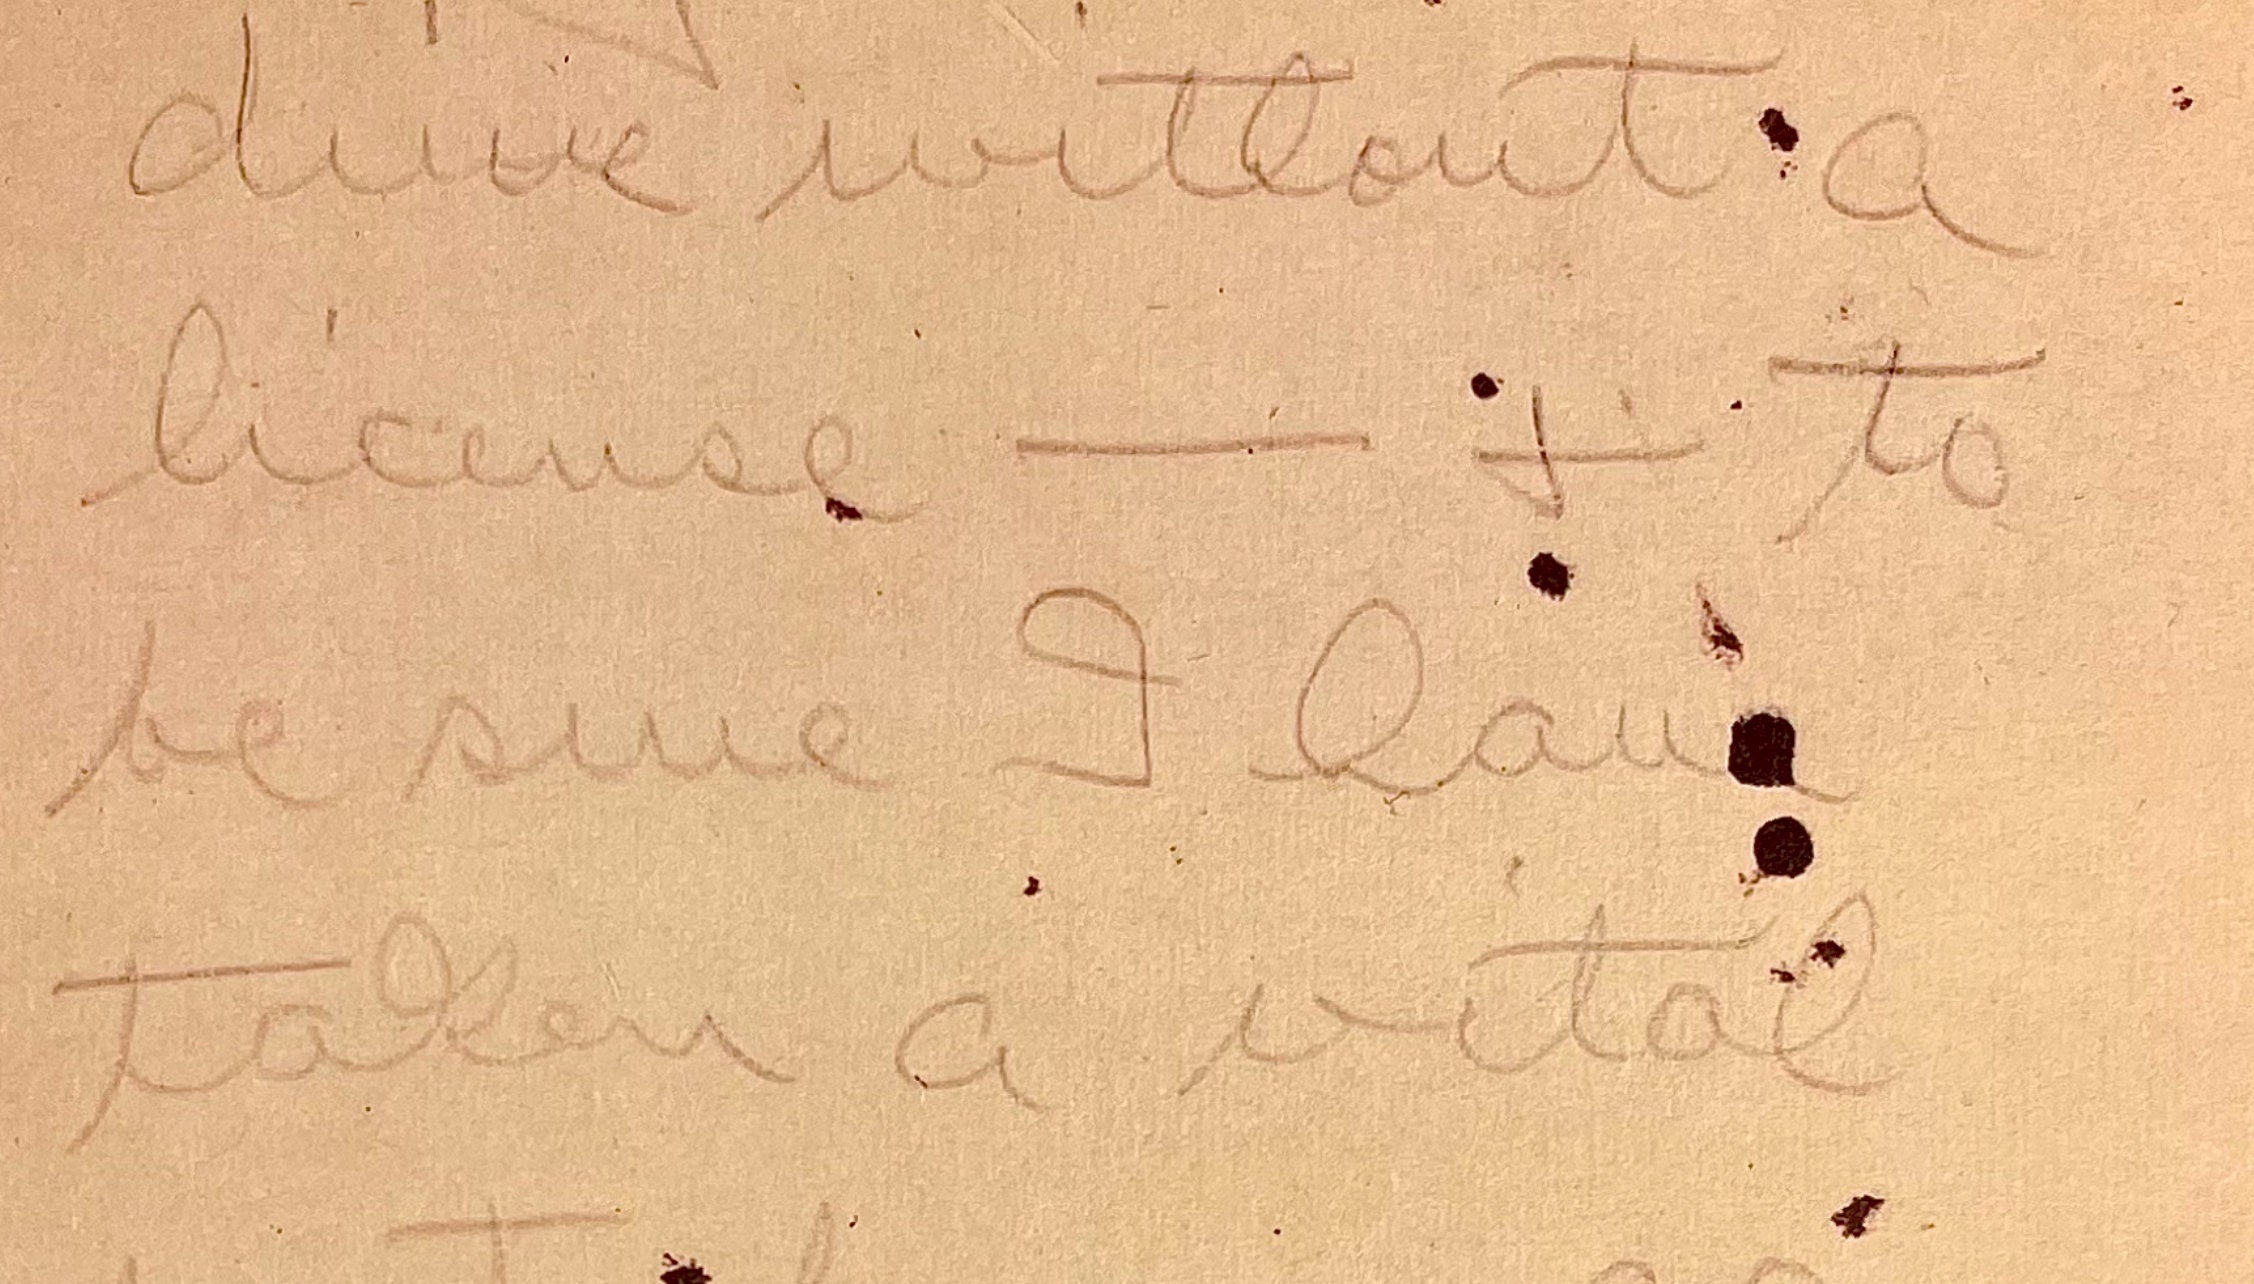 drive without a
license — + to
be sure I have
taken a vital